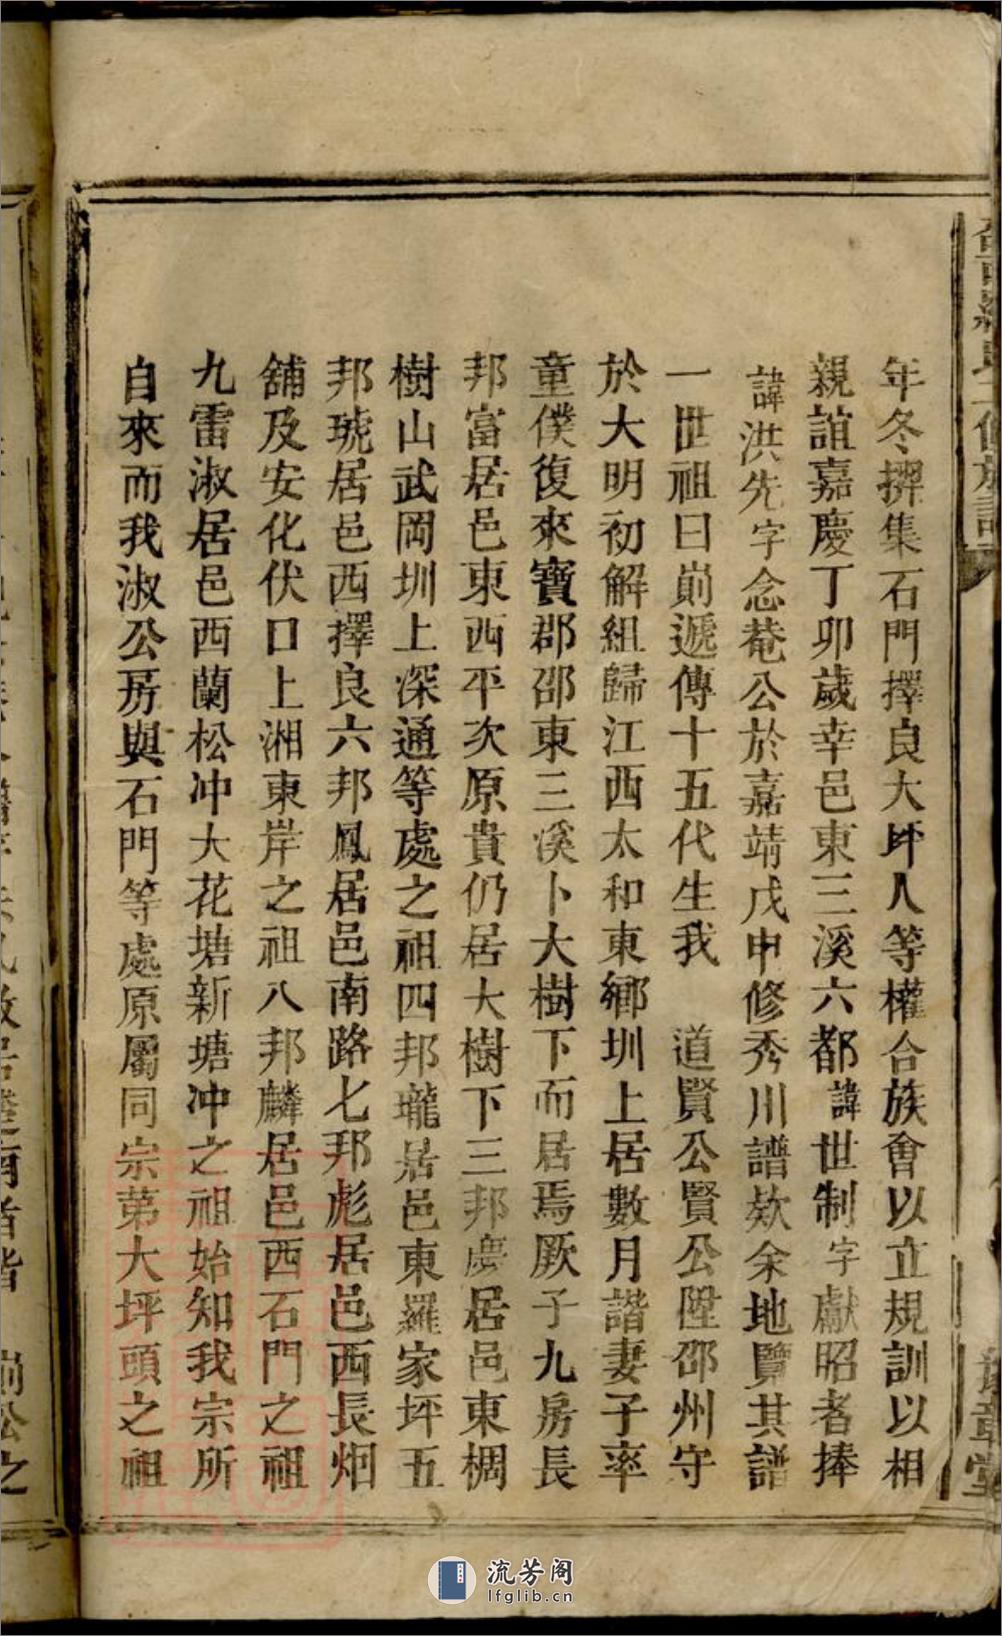 年冬擇集石門擇良大坪人等權合族會以立規訓以相
親誼嘉慶丁卯歲幸邑東三溪六都諱世制字獻昭者捧
諱洪先字念菴公於嘉靖戊申修秀川譜欸余地覽其譜
一世祖曰崱遞傳十五代生我 道賢公賢公陞邵州守
於大明初解組歸江西太和東鄉圳上居數月諧妻子率
童僕復來寶郡邵東三溪卜大樹下而居焉厥子九房長
邦富居邑東西平次原貴仍居大樹下三邦慶居邑東椆
樹山武岡圳上深通等處之祖四邦瓏居邑東羅家坪五
邦琥居邑西擇良六邦鳳居邑南路七邦彪居邑西長炯
舖及安化伏口上湘東岸之祖八邦麟居邑西石門之祖
九雷淑居邑西蘭松冲大花塘新塘冲之祖始知我宗所
自來而我淑公房與石門等處原屬同宗第大坪頭之祖
豫章堂
流芳阁
lfglib.cn